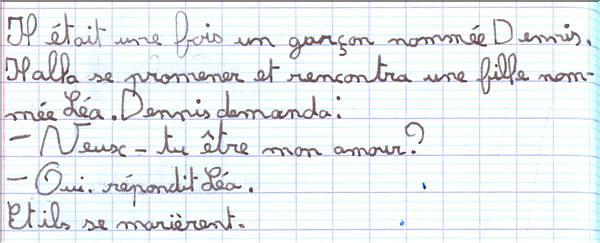 Il était une fois un garçon nommée Dennis.
Il alla se promener et rencontra une fille nom-
mée Léa. Dennis demanda:
- Veux-tu être mon amour?
- Oui. répondit Léa.
Et ils se marièrent.